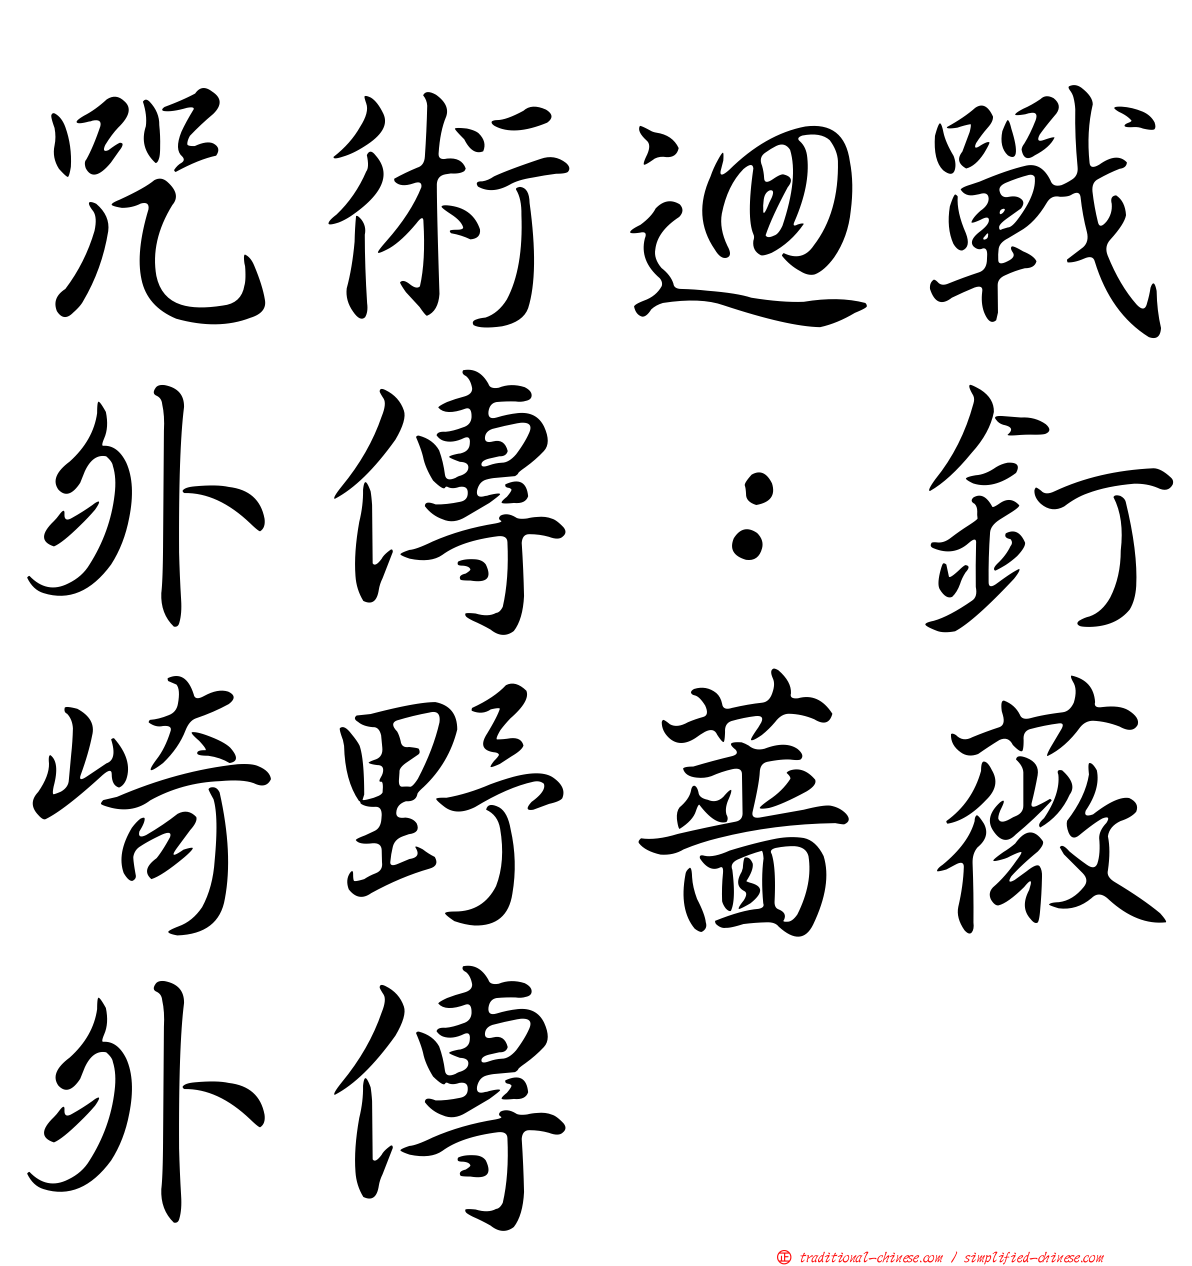 咒術迴戰
外傳：釘
崎野薔薇
外傳
正 traditional-chinese.com / simplified-chinese.com